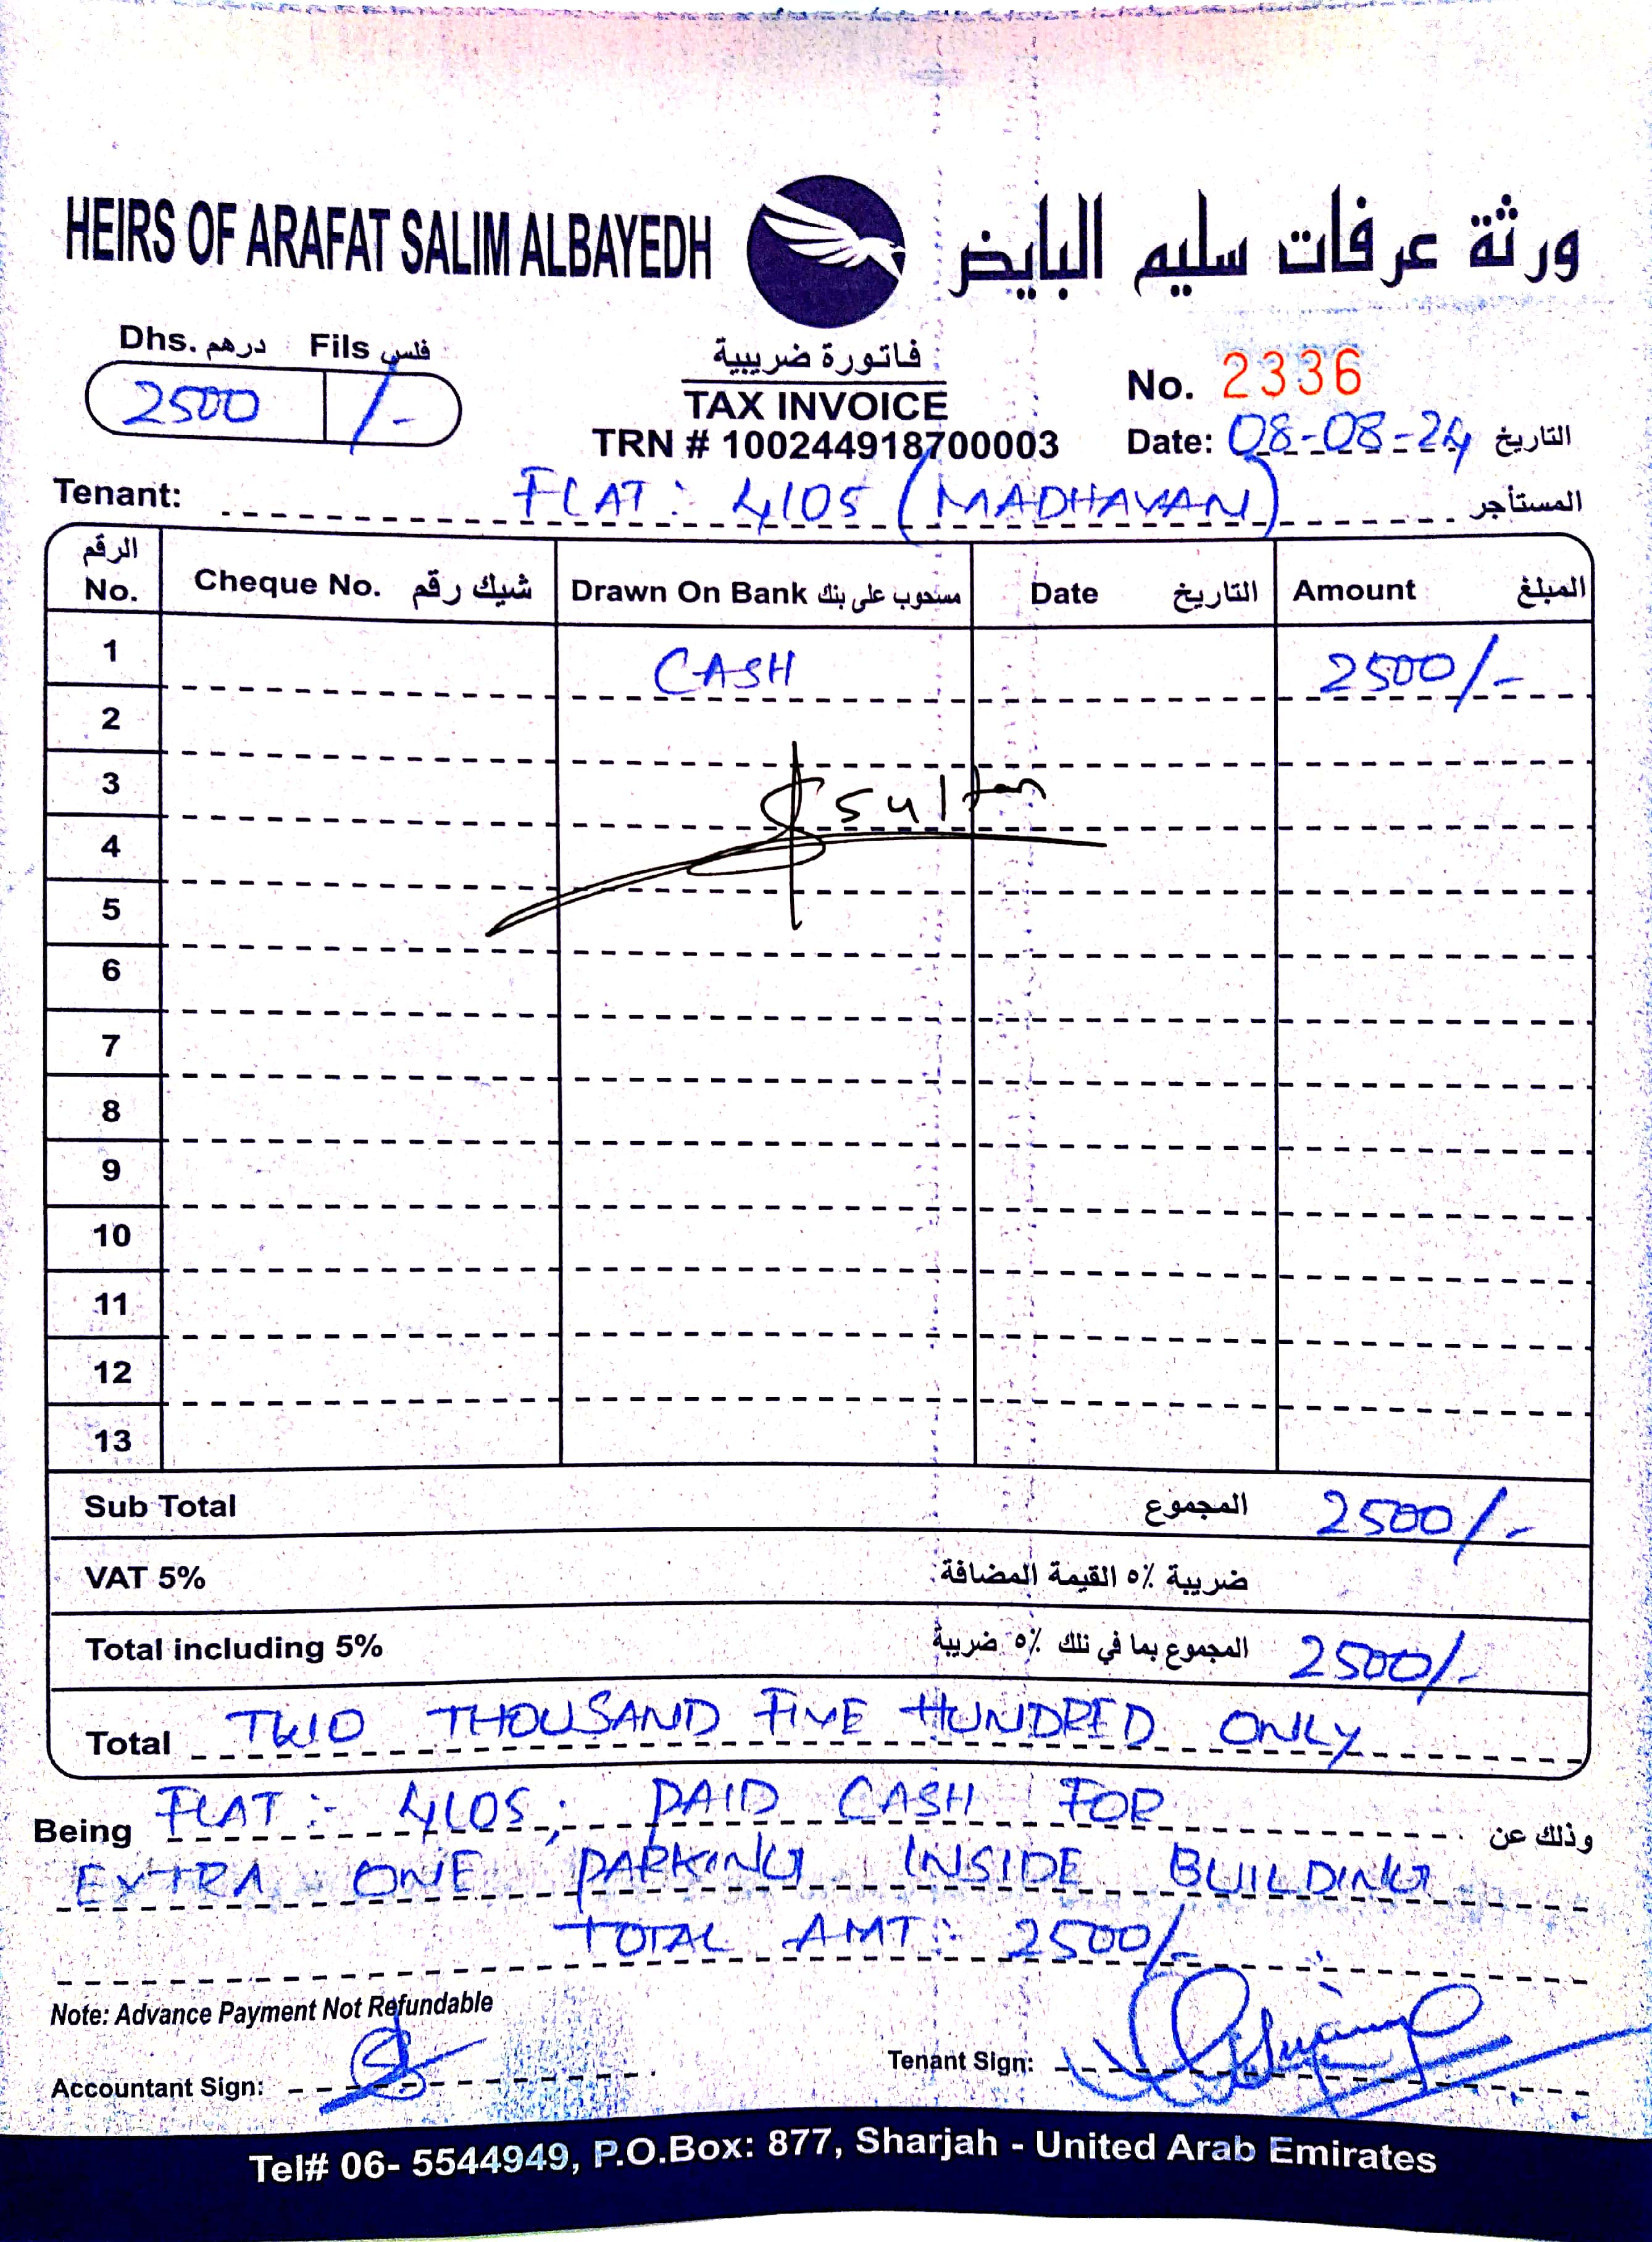 HEIRS OF ARAFAT SALIM ALBAYEDH ورثة عرفات سليم البايض
Dhs. درهم Fils فلس
2500 /-
فاتورة ضريبية
TAX INVOICE
TRN # 100244918700003
No. 2336
Date: 08-08-24 التاريخ
Tenant: FLAT: 4105 (MADHAVAN) المستأجر
الرقم No. Cheque No. شيك رقم Drawn On Bank مسحوب على بنك Date التاريخ Amount المبلغ
1 CASH 2500/-
2
3 Sultan
4
5
6
7
8
9
10
11
12
13
Sub Total المجموع 2500/-
VAT 5% ضريبة ٥٪ القيمة المضافة
Total including 5% المجموع بما في ذلك ٥٪ ضريبة 2500/-
Total TWO THOUSAND FIVE HUNDRED ONLY
Being FLAT:- 4105; PAID CASH FOR وذلك عن
EXTRA ONE PARKING INSIDE BUILDING
TOTAL AMT:- 2500/-
Note: Advance Payment Not Refundable
Accountant Sign: Tenant Sign:
Tel# 06- 5544949, P.O.Box: 877, Sharjah - United Arab Emirates